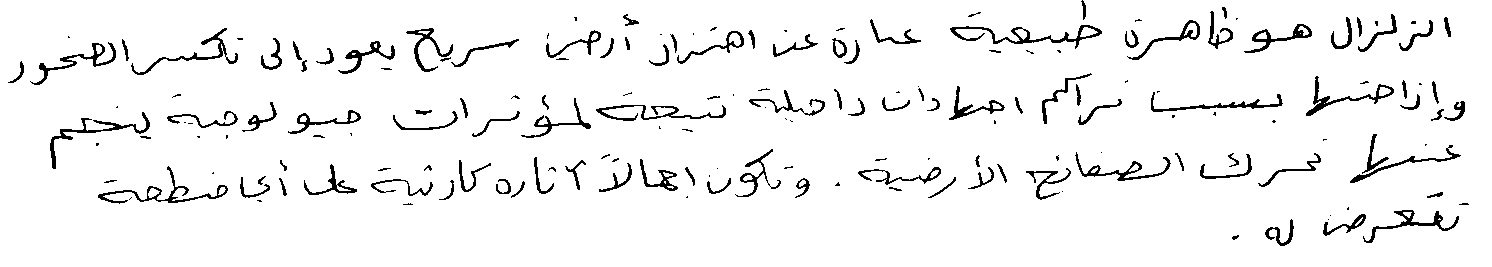 الزلزال هو ظاهرة طبيعية عبارة عن اهتزاز أرضي سريع يعود إلى تكسر الصخور
وإزاحتها بسبب تراكم اجهادات داخلية نتيجة لمؤثرات جيولوجية ينجم
عنها تحرك الصفائح الأرضية. وتكون اجمالاً آثاره كارثية على أي منطقة
تتعرض له.